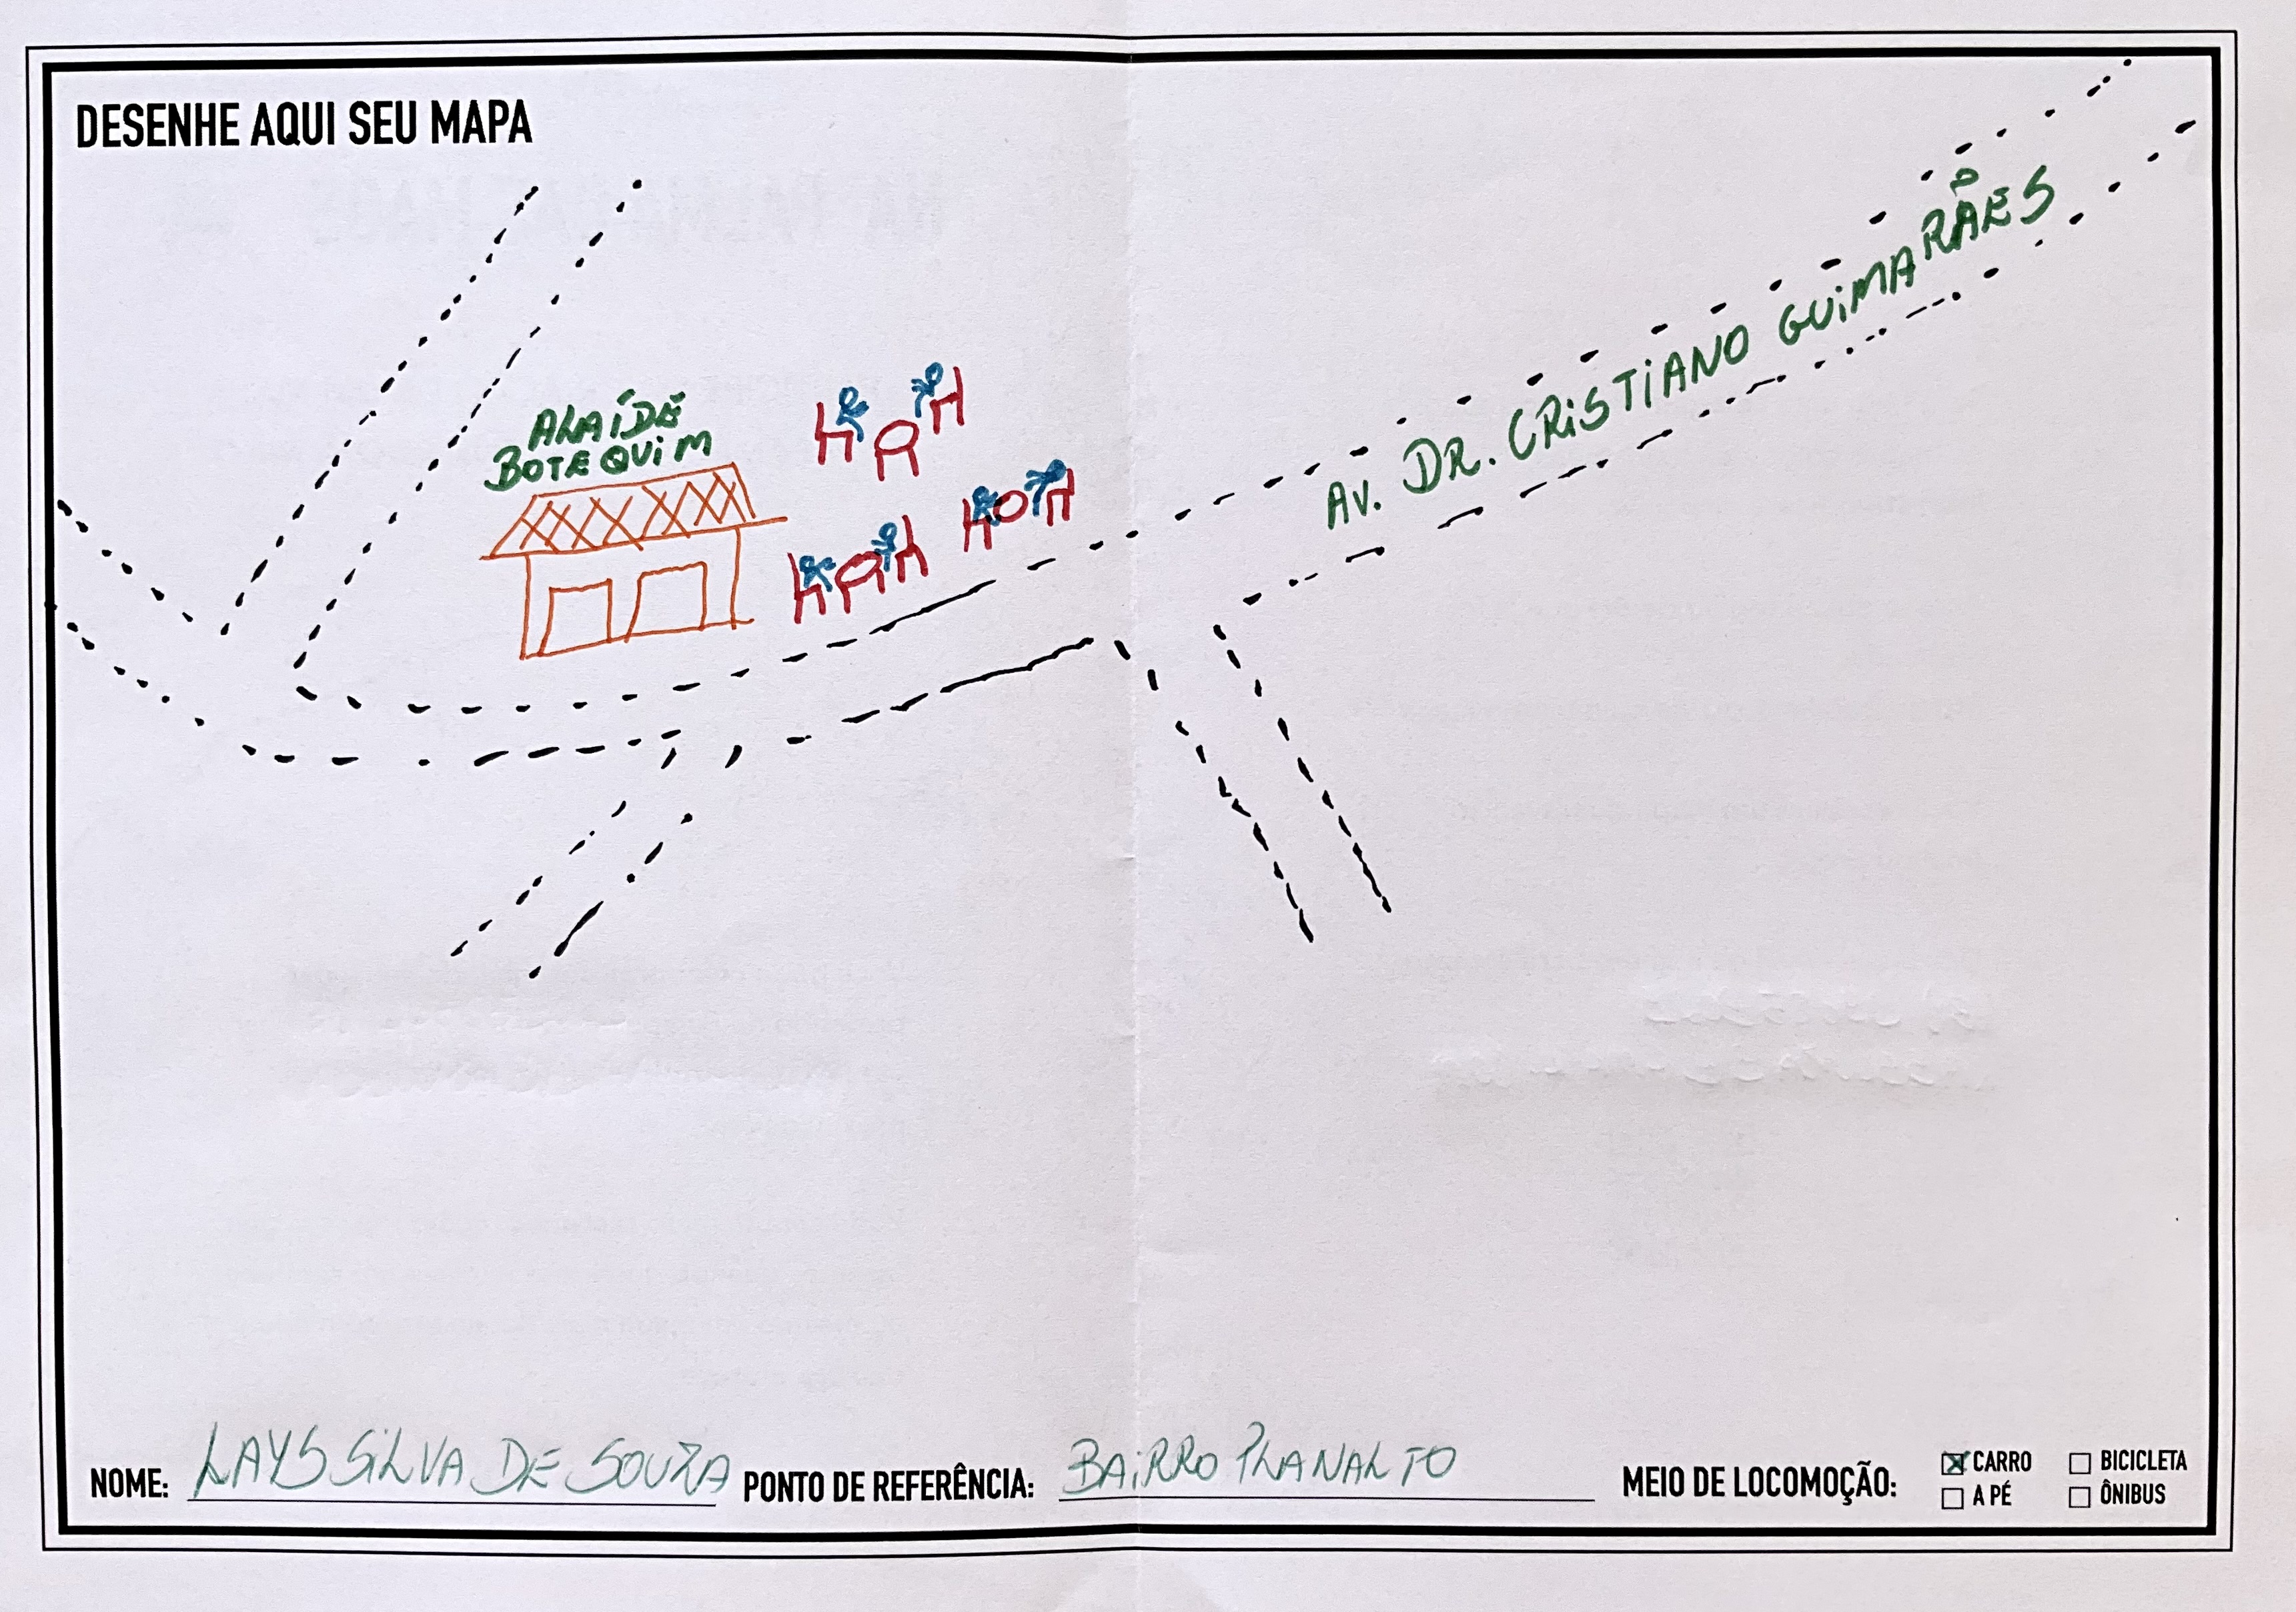 DESENHE AQUI SEU MAPA
ALAÍDE
BOTEQUIM
AV. DR. CRISTIANO GUIMARÃES
NOME: LAYS SILVA DE SOUZA PONTO DE REFERÊNCIA: BAIRRO PLANALTO MEIO DE LOCOMOÇÃO: CARRO BICICLETA
A PÉ ÔNIBUS